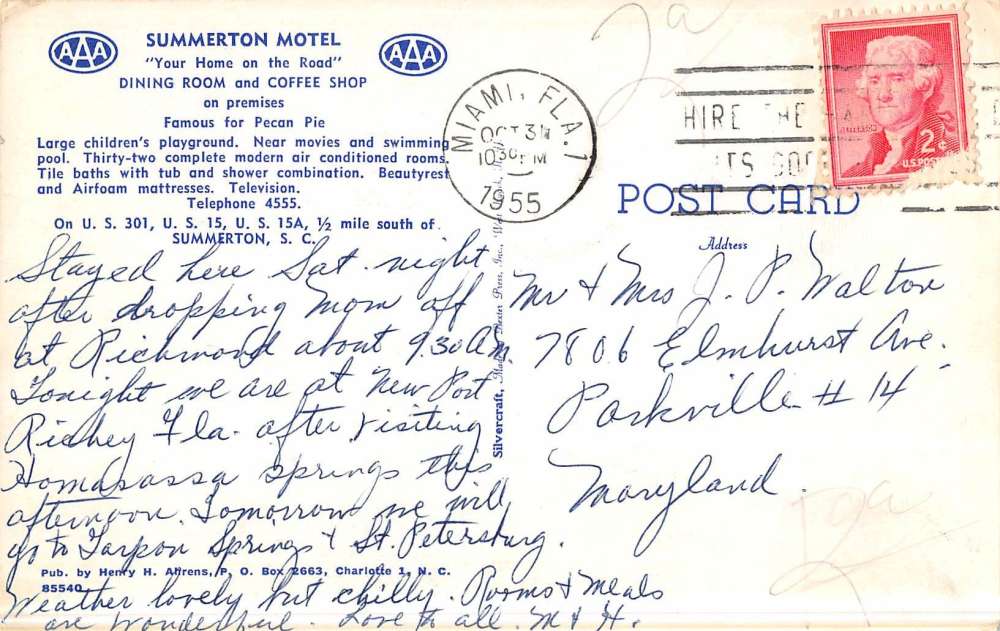 AAA
SUMMERTON MOTEL
AAA
"Your Home on the Road"
DINING ROOM and COFFEE SHOP
on premises
Famous for Pecan Pie
Large children's playground. Near movies and swimming
pool. Thirty-two complete modern air conditioned rooms.
Tile baths with tub and shower combination. Beautyrest
and Airfoam mattresses. Television.
Telephone 4555.
On U. S. 301, U. S. 15, U. S. 15A, ½ mile south of
SUMMERTON, S. C.
Stayed here Sat. night
after dropping Mom off
at Richmond about 9.30 A.M.
Tonight we are at New Port
Richey Fla. after visiting
Homasassa Springs this
afternoon. Tomorrow we will
go to Tarpon Springs & St. Petersburg.
Pub. by Henry H. Ahrens, P. O. Box 2663, Charlotte 1, N. C.
85540
Weather lovely but chilly. Rooms & Meals
are wonderful. Love to all. M & H.
Silvercraft, Dexter Press, Inc.,
MIAMI, FLA. 1
OCT 31
10 30 PM
1955
HIRE THE
2¢
U.S. POS
POST CARD
Address
Mr & Mrs J. P. Walton
7806 Elmhurst Ave.
Parkville # 14
Maryland.